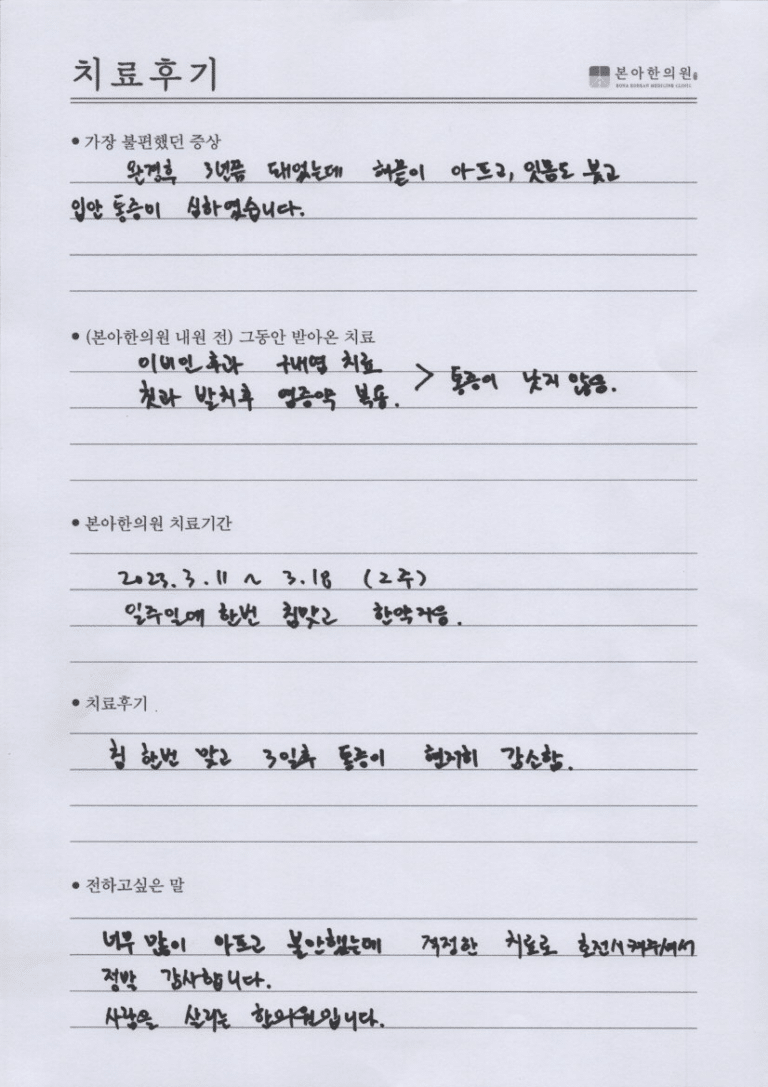 치료후기
본아한의원
BONA KOREAN MEDICINE CLINIC
• 가장 불편했던 증상
완경후 3년쯤 돼었는데 혀끝이 아프고, 잇몸도 붓고
입안 통증이 심하였습니다.
• (본아한의원 내원 전) 그동안 받아온 치료
이비인후과 구내염 치료
칫과 발치후 염증약 복용. > 통증이 낫지 않음.
• 본아한의원 치료기간
2023. 3. 11 ~ 3. 18 (2주)
일주일에 한번 침맞고 한약지음.
• 치료후기
침 한번 맞고 3일후 통증이 현저히 감소함.
• 전하고싶은 말
너무 많이 아프고 불안했는데 적정한 치료로 호전시켜주셔서
정말 감사합니다.
사람을 살리는 한의원입니다.